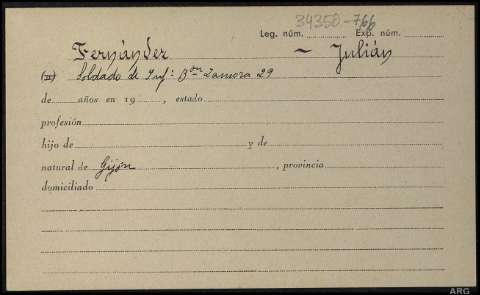 34350-766
Leg. núm. Exp. núm.
Fernández — Julián
(II) Soldado de Inf: Bon Zamora 29
de años en 19 , estado
profesión
hijo de y de
natural de Gijón , provincia
domiciliado
ARG